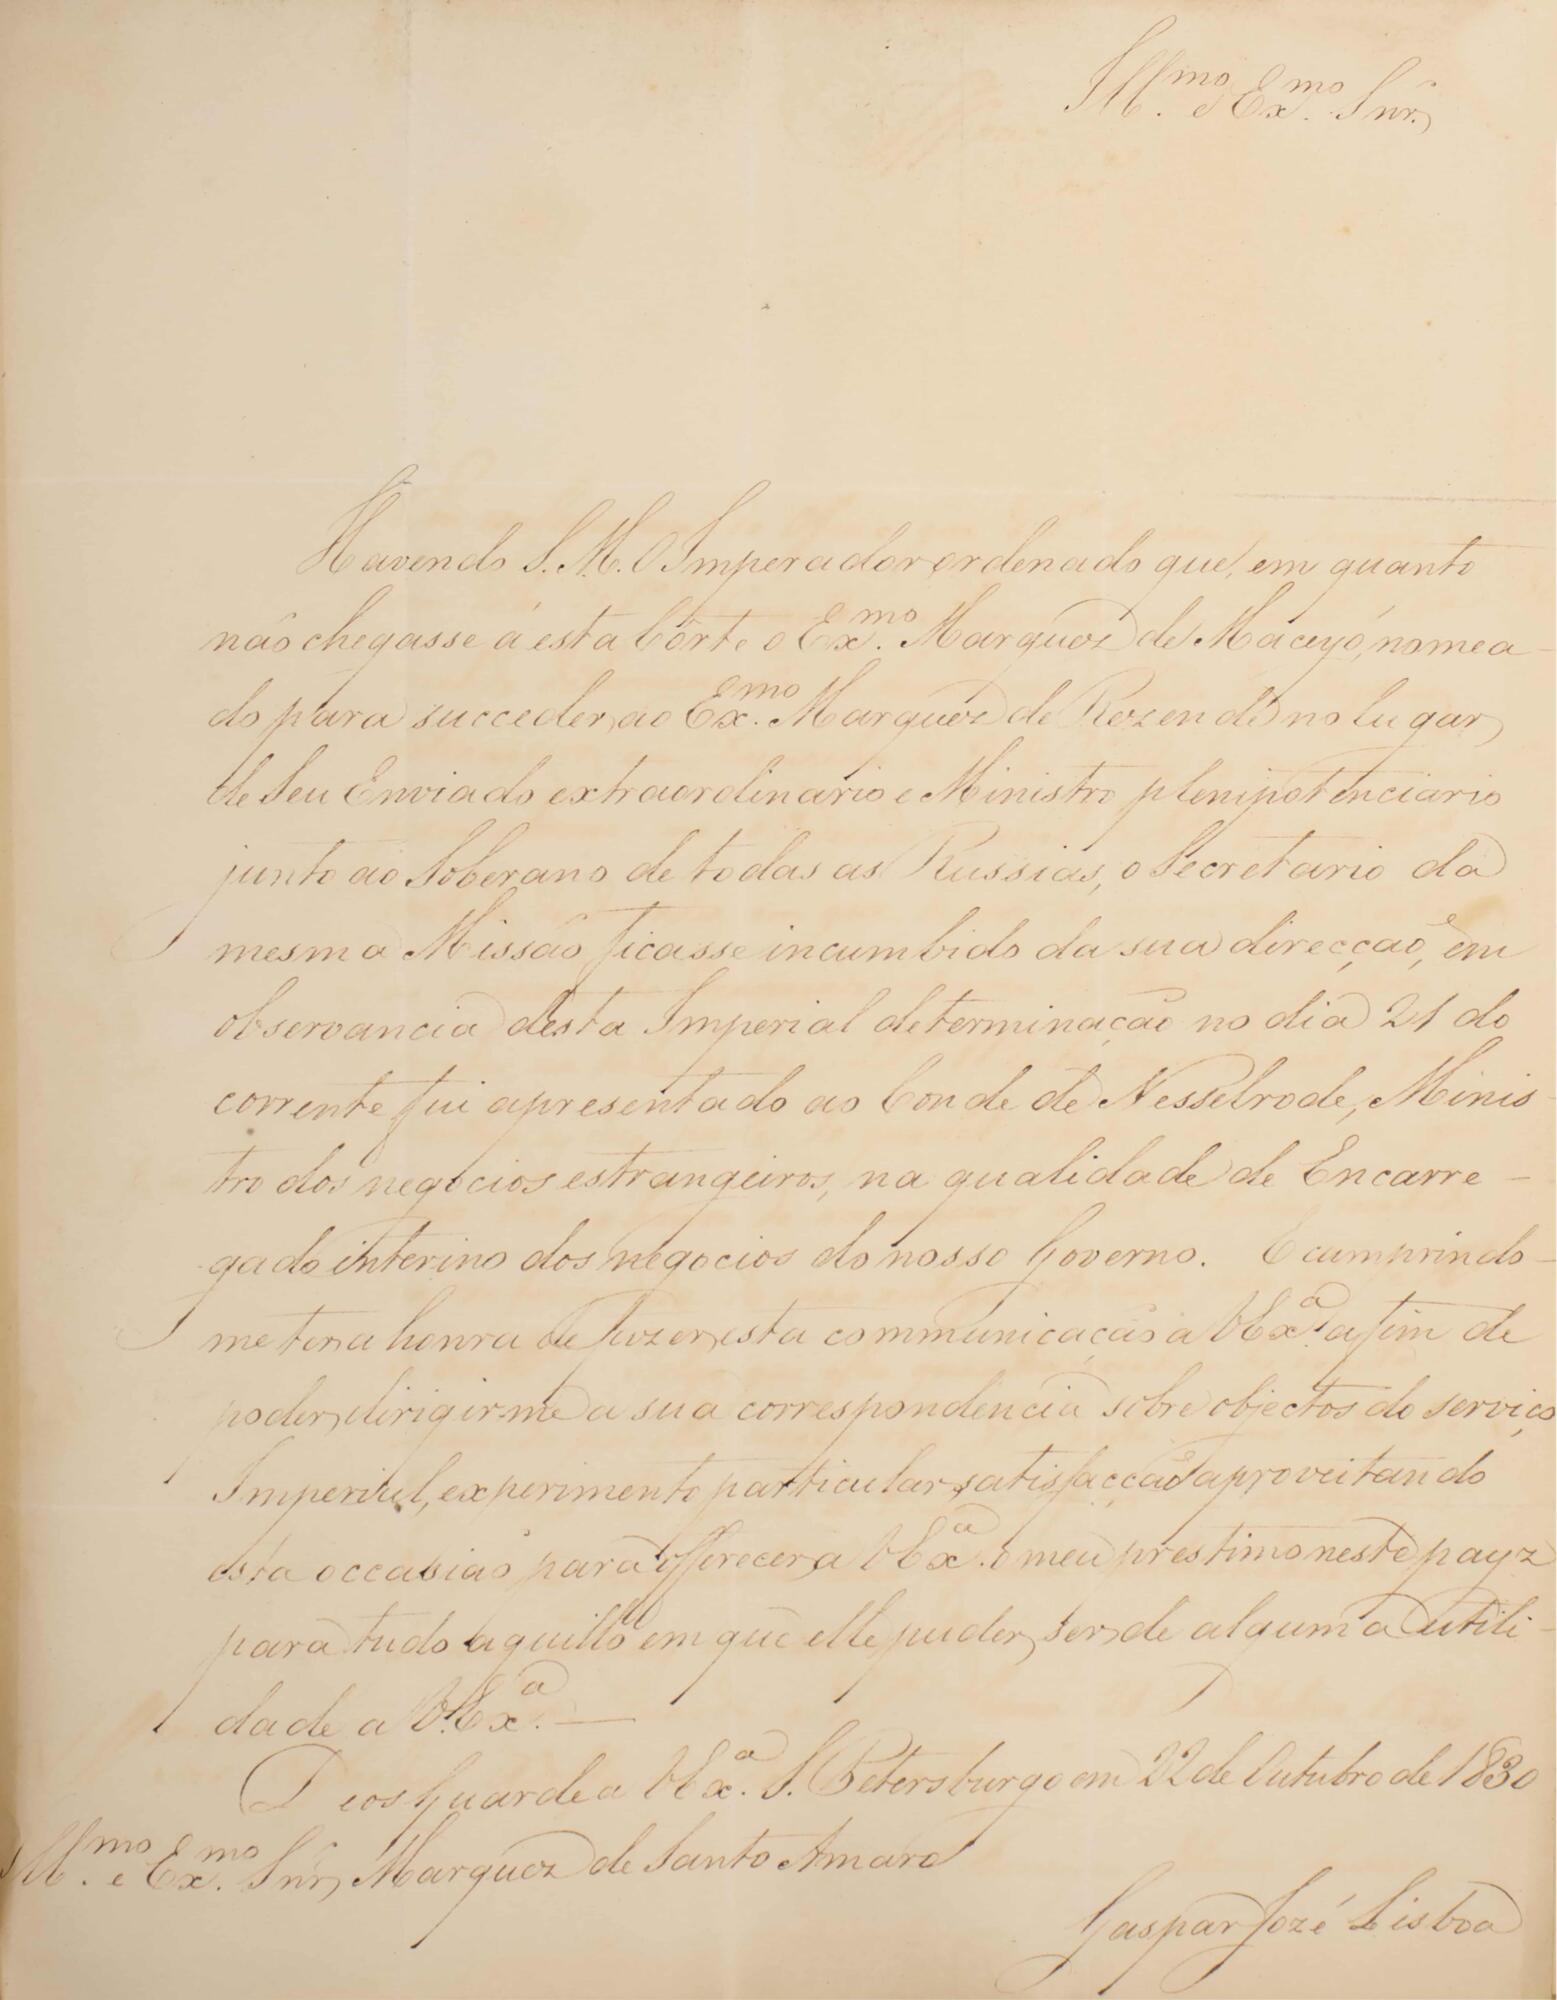 Ill.mo e Ex.mo Snr.
Havendo S. M. O Imperador ordenado que, em quanto
não chegasse á esta Côrte o Ex.mo Marquez de Maceyó, nomea-
do para succeder ao Ex.mo Marquez de Rezende no lugar
de Seu Enviado extraordinario e Ministro plenipotenciario
junto ao Soberano de todas as Russias, o Secretario da
mesma Missão ficasse incumbido da sua direcção, em
observancia desta Imperial determinação no dia 21 do
corrente fui apresentado ao Conde de Nesselrode, Minis-
tro dos negocios estrangeiros, na qualidade de Encarre-
gado interino dos negocios do nosso Governo. E cumprindo-
me ter a honra de fazer esta communicação a V.Ex.a a fim de
poder dirigir-me a sua correspondencia sobre objectos do serviço
Imperial, experimento particular satisfacção aproveitando
esta occasião para offerecer a V.Ex.a o meu prestimo neste payz
para tudo aquillo em que elle puder ser de alguma utili-
dade a V.Ex.a. —
Deos Guarde a V.Ex.a. S. Petersburgo em 22 de Outubro de 1830
Ill.mo e Ex.mo Snr. Marquez de Santo Amaro
Gaspar Jozé Lisboa